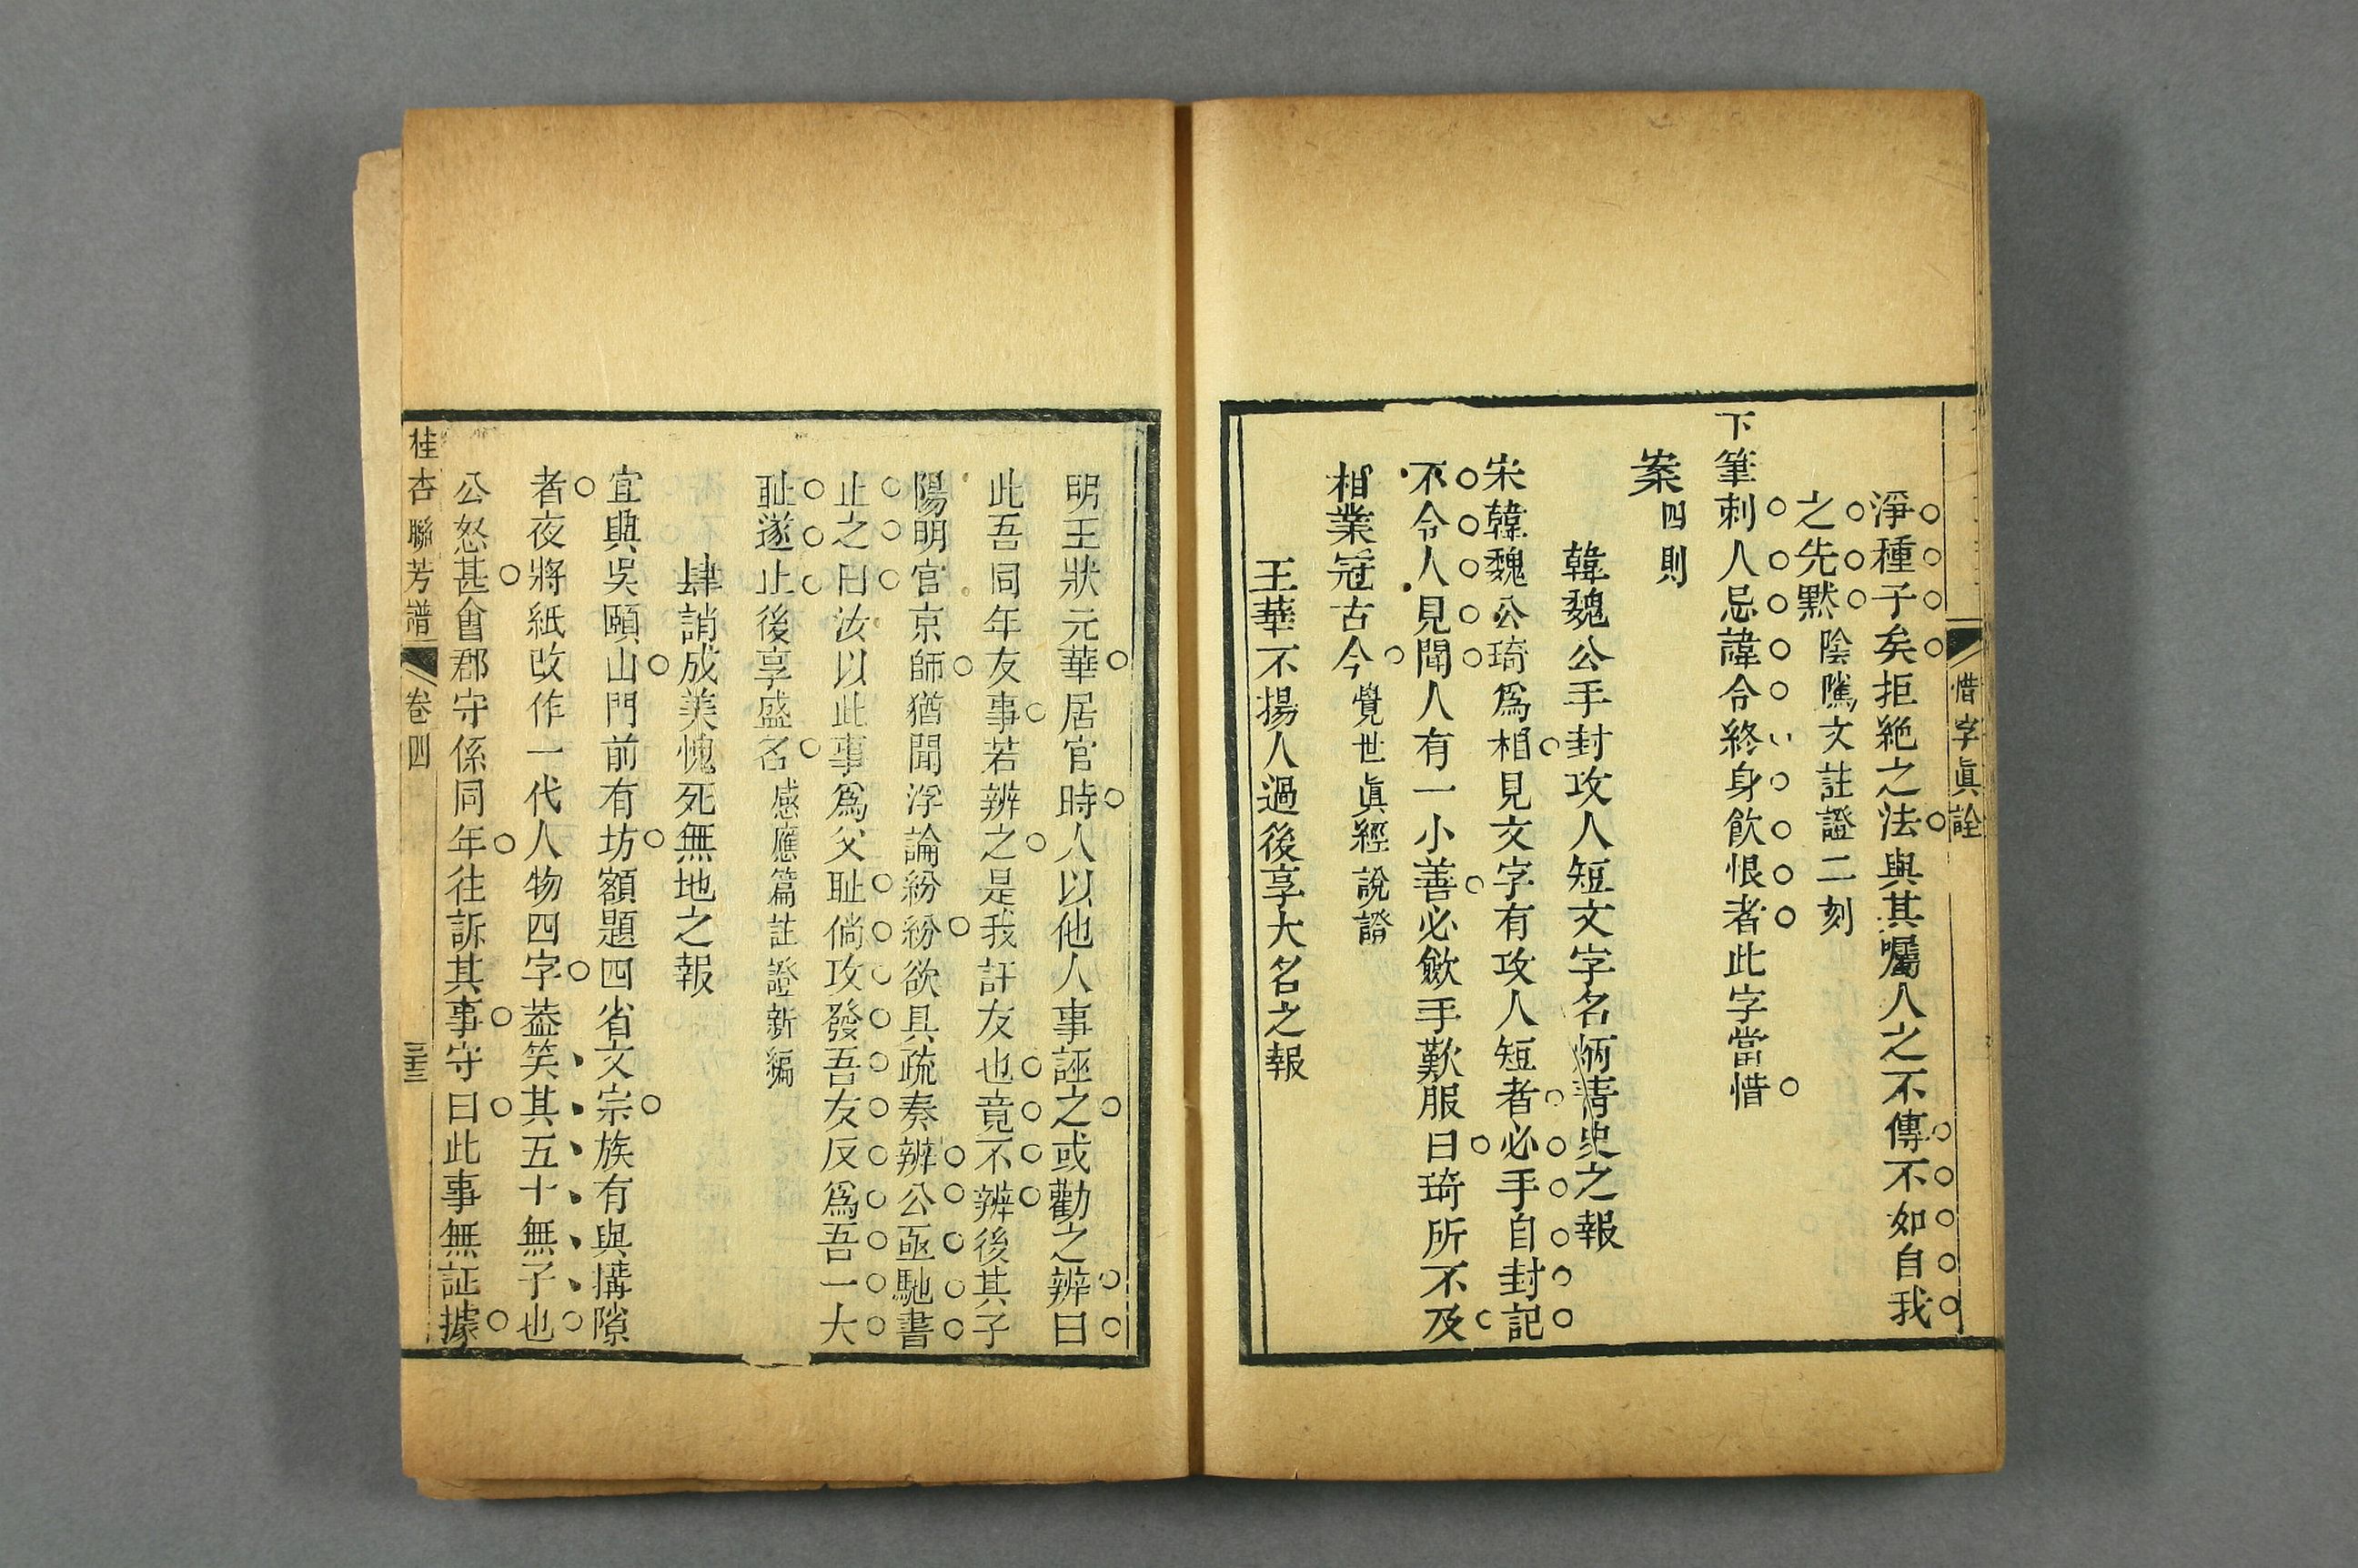 惜字眞詮
淨種子矣拒絶之法與其囑人之不傳不如自我
之先默陰騭文註證二刻
下筆刺人忌諱令終身飮恨者此字當惜
案四則
韓魏公手封攻人短文字名炳靑史之報
宋韓魏公琦爲相見文字有攻人短者必手自封記
不令人見聞人有一小善必斂手歎服曰琦所不及
相業冠古今覺世眞經說證
王華不揚人過後享大名之報
明王狀元華居官時人以他人事誣之或勸之辨曰
此吾同年友事若辨之是我訐友也竟不辨後其子
陽明官京師猶聞浮論紛紛欲具疏奏辨公亟馳書
止之曰汝以此事爲父耻倘攻發吾友反爲吾一大
耻遂止後享盛名感應篇註證新編
肆誚成美愧死無地之報
宜興吳頤山門前有坊額題四省文宗族有與搆隙
者夜將紙改作一代人物四字葢笑其五十無子也
公怒甚會郡守係同年往訴其事守曰此事無証據
桂杏聯芳譜 卷四 三十三